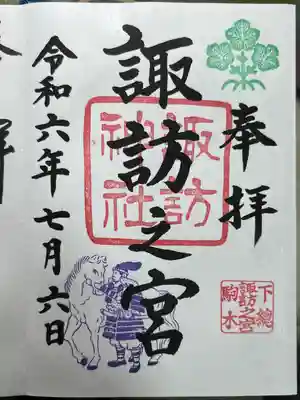 奉拝
諏訪之宮
諏訪
神社
下總
諏訪之宮
駒木
令和六年七月六日
拝